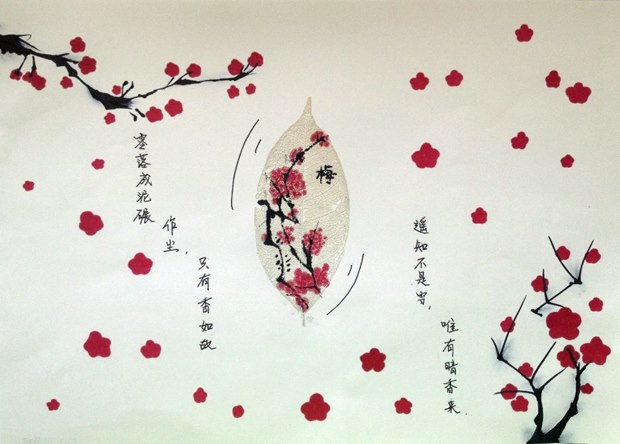 零落成泥碾
作尘，
只有香如故
梅
遥知不是雪，
唯有暗香来.